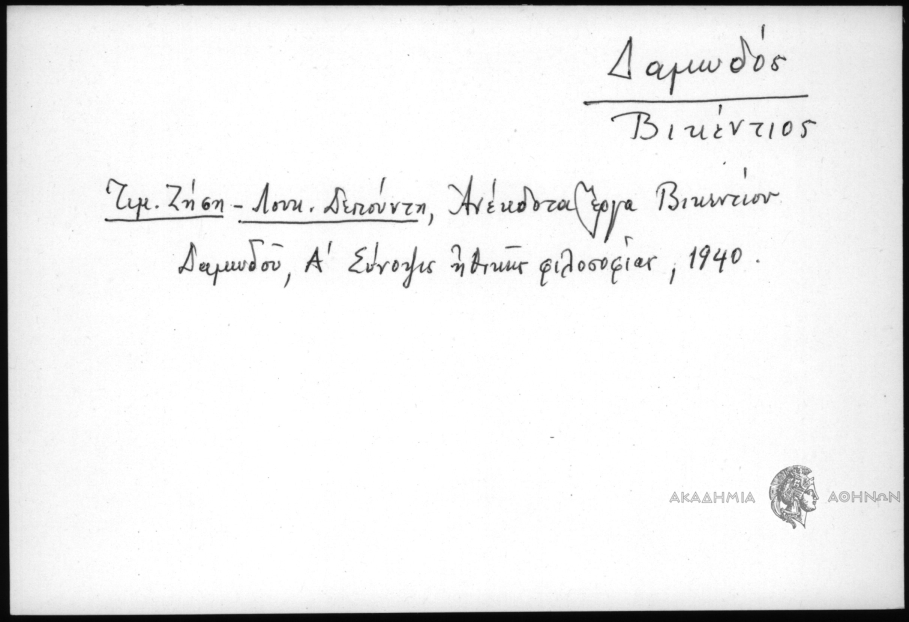 Δαμωδός
Βικέντιος
Τιμ. Ζήση - Λουκ. Δεπούντη, Ἀνέκδοτα ἔργα Βικεντίου
Δαμωδοῦ, Α' Σύνοψις ἠθικῆς φιλοσοφίας, 1940.
ΑΚΑΔΗΜΙΑ ΑΘΗΝΩΝ